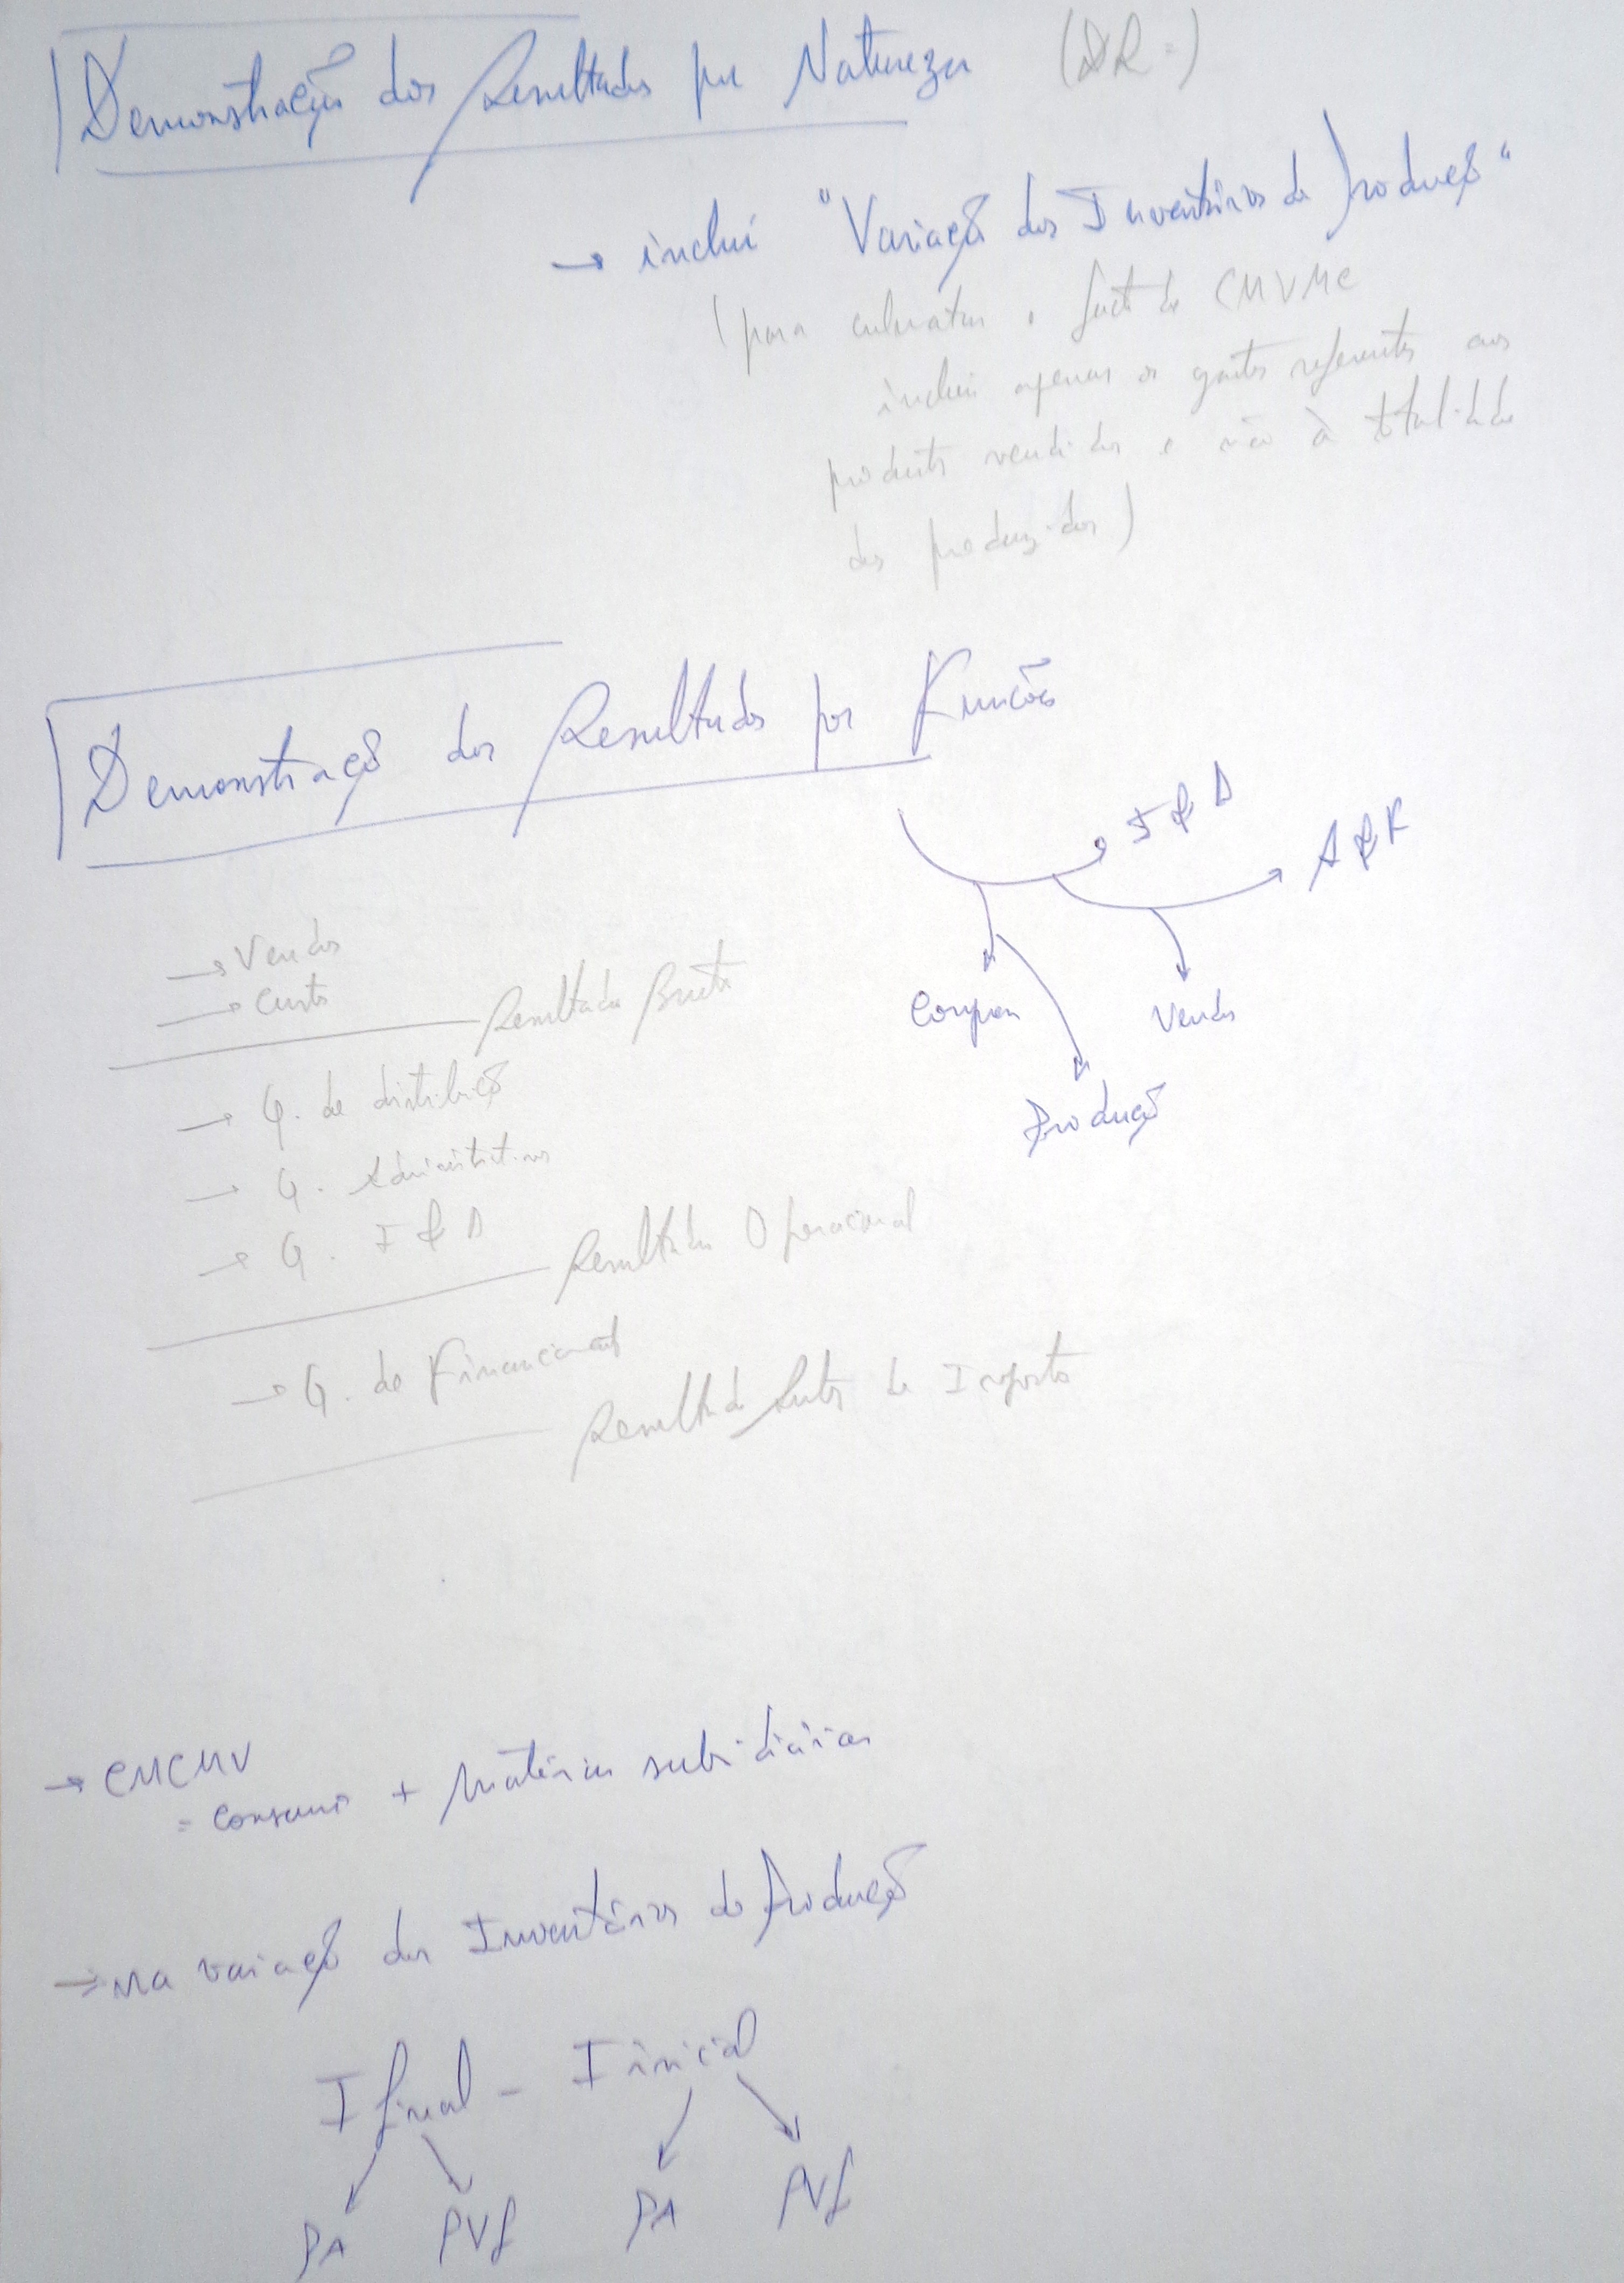 Demonstração dos Resultados por Natureza (DR =)
→ inclui "Variação dos Inventários da Produção"
(para colmatar o facto do CMVMC
inclui apenas os gastos referentes aos
produtos vendidos e não à totalidade
dos produzidos)
Demonstração dos Resultados por Funções
→ I & D
→ A & F
Compras
Vendas
Produção
→ Vendas
→ Custo
Resultado Bruto
→ G. de distribuição
→ G. Administrativos
→ G. I & D
Resultado Operacional
→ G. de Financiamento
Resultado Antes de Imposto
→ CMCMV
= consumo + matérias subsidiárias
→ na variação dos Inventários de Produção
I final - I inicial
PA PVf PA PVf